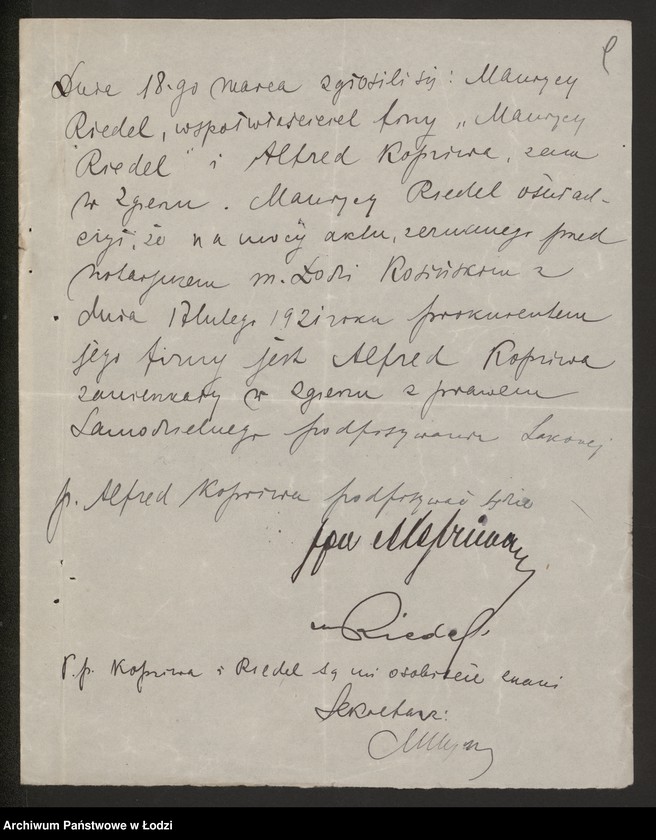 Dnia 18-go marca zgłosili się: Maurycy
Riedel, współwłaściciel firmy „Maurycy
Riedel" i Alfred Kopriwa, zam
w Zgierzu. Maurycy Riedel oświad-
czył, że na mocy aktu, zeznanego przed
notarjuszem m. Łodzi Rosińskim z
dnia 17 lutego 1921 roku prokurentem
jego firmy jest Alfred Kopriwa
zamieszkały w Zgierzu z prawem
samodzielnego podpisywania takowej
p. Alfred Kopriwa podpisywać będzie
ppa AKopriwa
Riedel
P.p. Kopriwa i Riedel są mi osobiście znani
Sekretarz:
Archiwum Państwowe w Łodzi